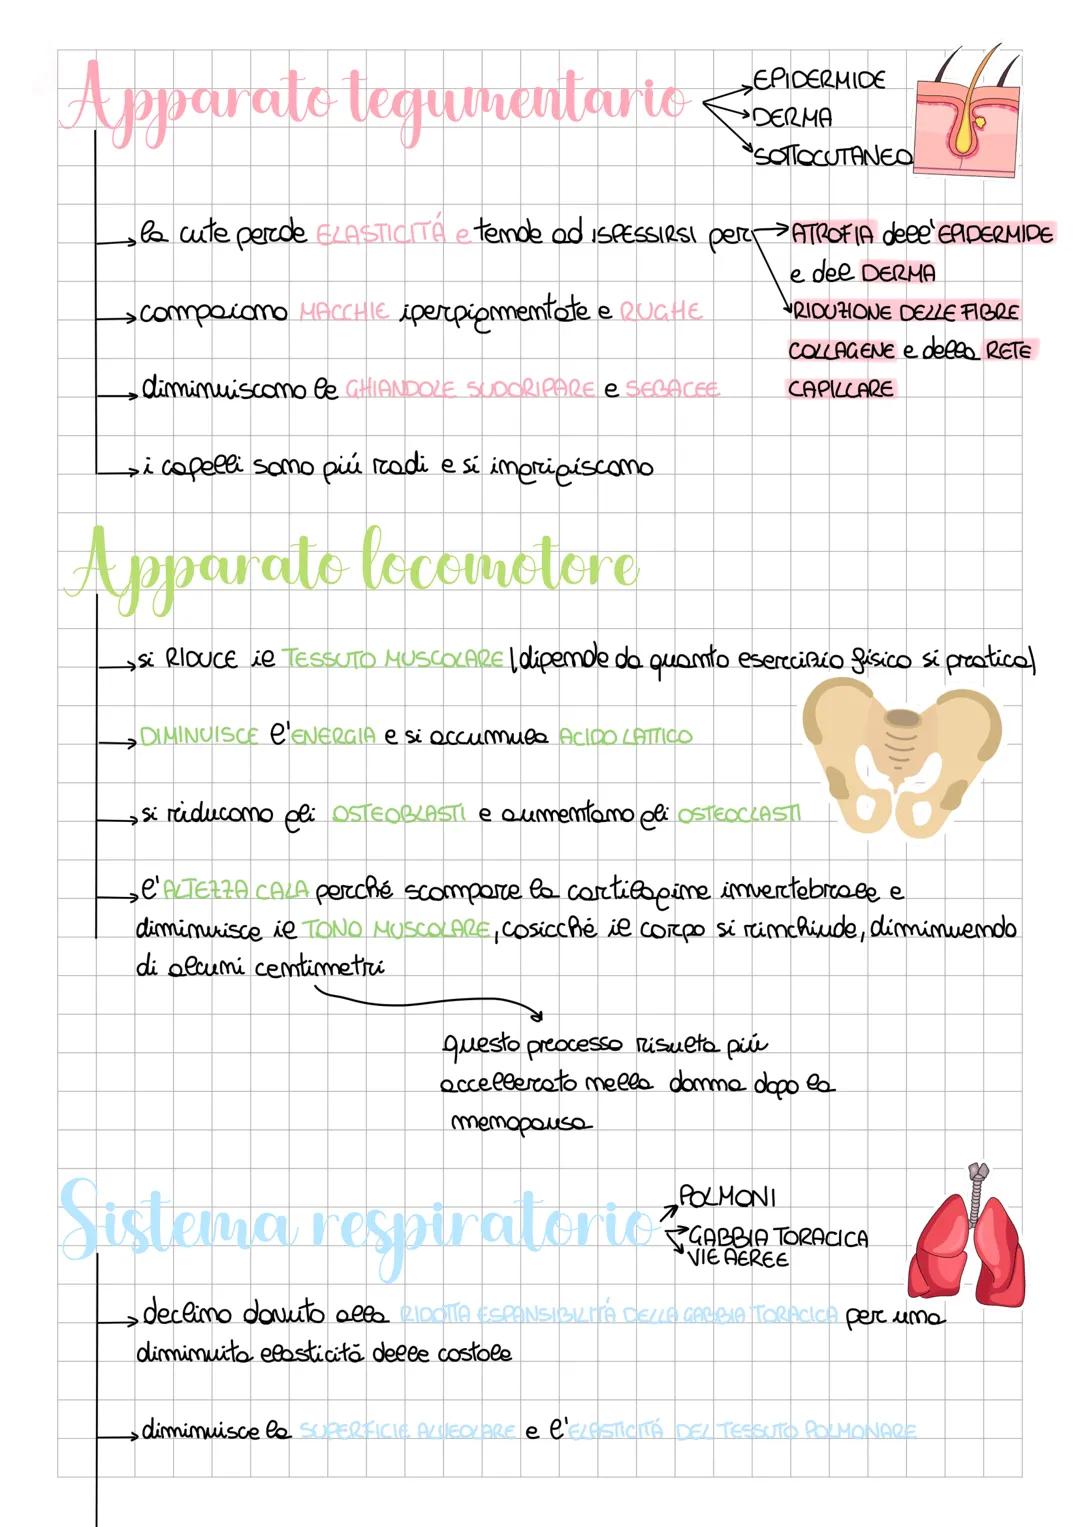 Apparato tegumentario
EPIDERMIDE
DERMA
SOTTOCUTANEO
la cute perde ELASTICITÁ e tende ad ISPESSIRSI per
ATROFIA dell'EPIDERMIDE
e del DERMA
RIDUZIONE DELLE FIBRE
COLLAGENE e della RETE
CAPILLARE
compaiono MACCHIE iperpigmentate e RUGHE
diminuiscono le GHIANDOLE SUDORIPARE e SEBACEE
i capelli sono piú radi e si ingrigiscono
Apparato locomotore
si RIDUCE il TESSUTO MUSCOLARE (dipende da quanto esercizio fisico si pratica)
DIMINUISCE l'ENERGIA e si accumula ACIDO LATTICO
si riducono gli OSTEOBLASTI e aumentano gli OSTEOCLASTI
l'ALTEZZA CALA perché scompare la cartilagine invertebrale e
diminuisce il TONO MUSCOLARE, cosicché il corpo si rinchiude, diminuendo
di alcuni centimetri
questo processo risulta piú
accellerato nella donna dopo la
menopausa
Sistema respiratorio
POLMONI
GABBIA TORACICA
VIE AEREE
declino dovuto alla RIDOTTA ESPANSIBILITÁ DELLA GABBIA TORACICA per una
diminuita elasticitá delle costole
diminuisce la SUPERFICIE ALVEOLARE e l'ELASTICITÁ DEL TESSUTO POLMONARE